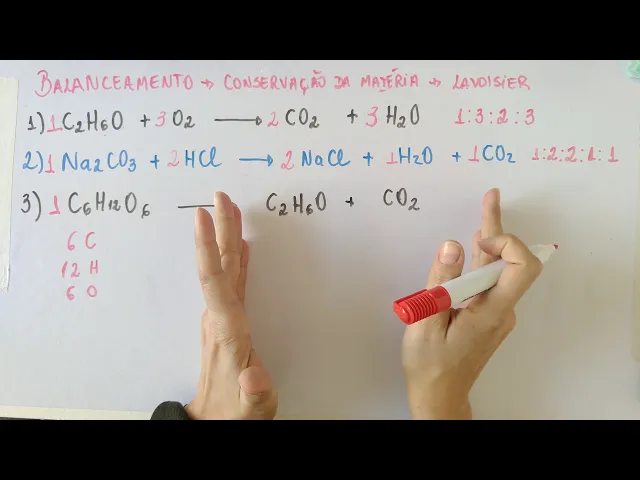 BALANCEAMENTO → CONSERVAÇÃO DA MATÉRIA → LAVOISIER
1) 1C2H6O + 3O2 → 2CO2 + 3H2O 1:3:2:3
2) 1Na2CO3 + 2HCl → 2NaCl + 1H2O + 1CO2 1:2:2:1:1
3) 1C6H12O6 — C2H6O + CO2
6 C
12 H
6 O